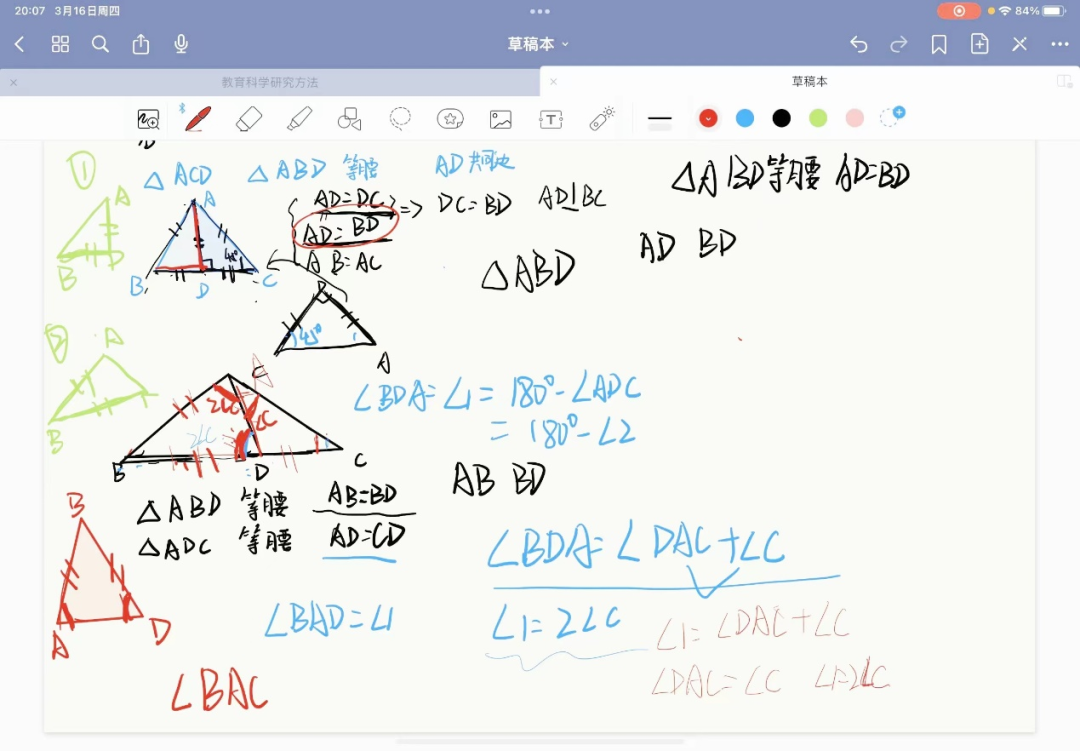 20:07 3月16日周四
84%
草稿本
教育科学研究方法
草稿本
①
A
B D
△ACD △ABD 等腰 AD共同边
A
B D C
45°
AD=DC
AD=BD
AB=AC
=> DC=BD AD⊥BC
△ABD等腰 AD=BD
AD BD
△ABD
B
45°
A
②
A
B
2∠C ∠C
2∠C
B D C
∠BDA=∠1=180°-∠ADC
=180°-∠2
AB BD
△ABD 等腰 AB=BD
△ADC 等腰 AD=CD
B
A D
∠BDA=∠DAC+∠C
∠BAD=∠1
∠1=2∠C
∠1=∠DAC+∠C
∠DAC=∠C ∠1=2∠C
∠BAC